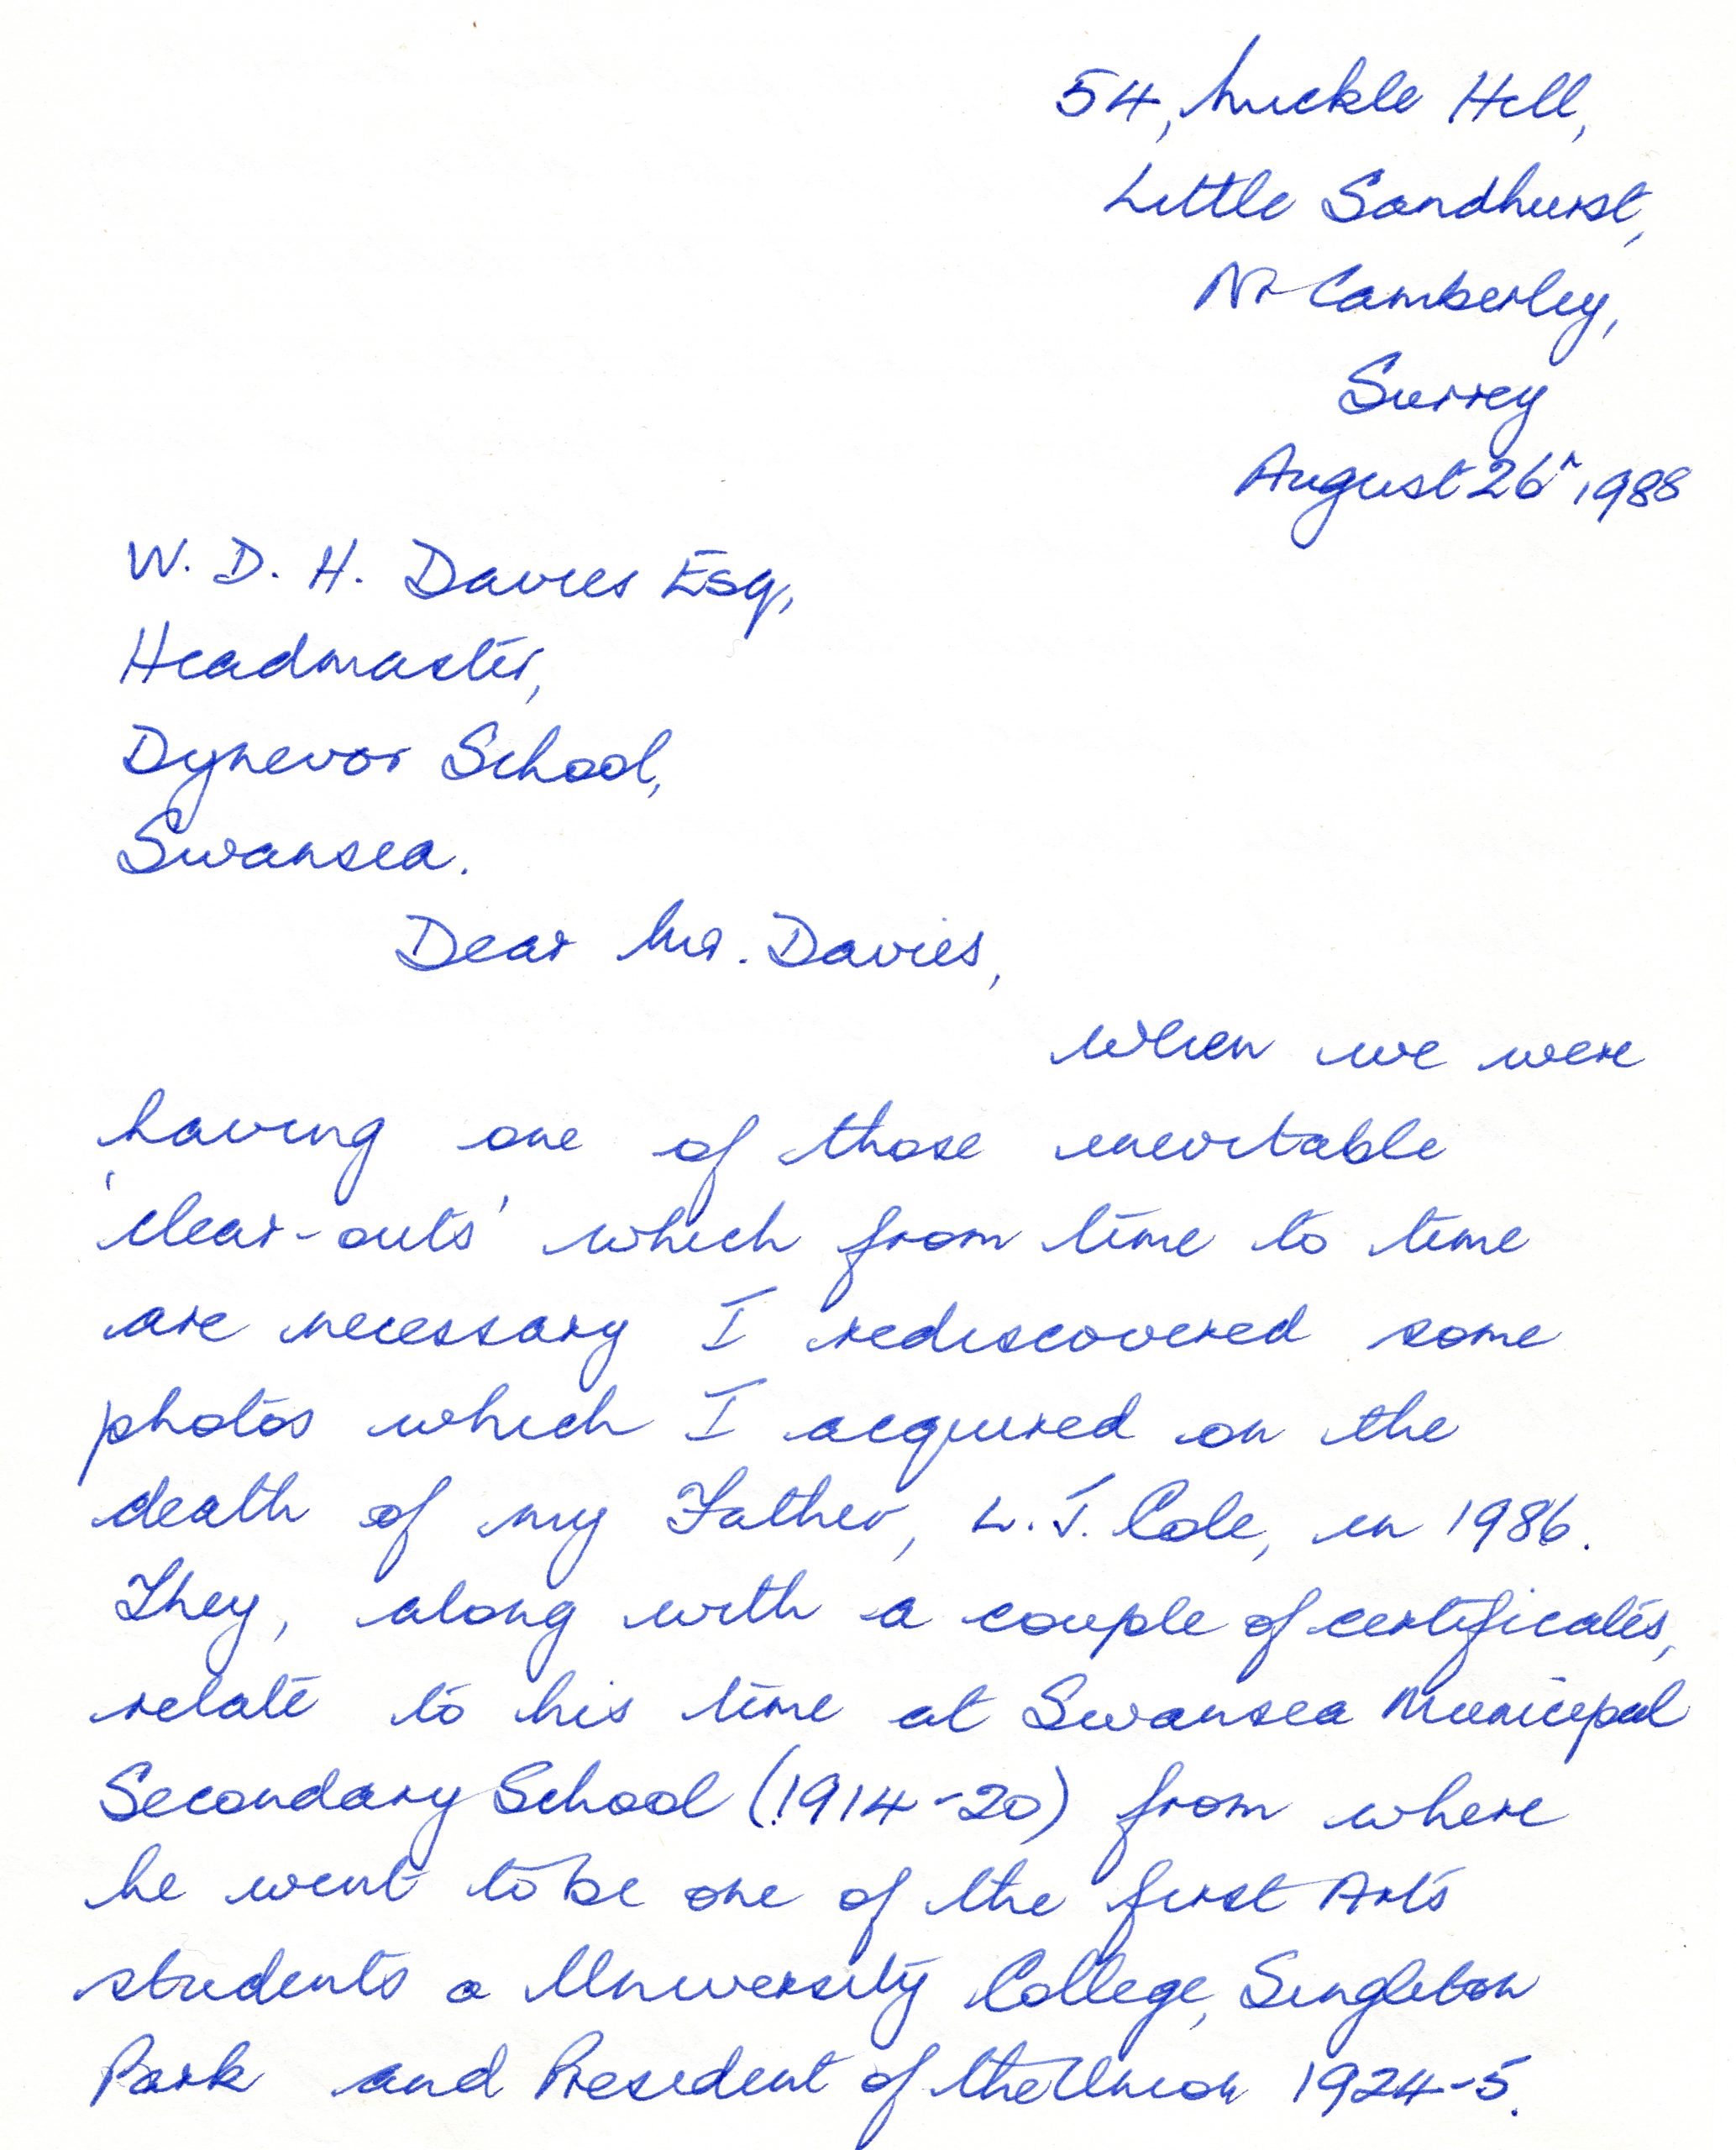 54, Mickle Hill,
Little Sandhurst,
Nr Camberley,
Surrey
August 26th 1988
W. D. H. Davies Esq,
Headmaster,
Dynevor School,
Swansea.
Dear Mr. Davies,
When we were
having one of those inevitable
'clear-outs' which from time to time
are necessary I rediscovered some
photos which I acquired on the
death of my Father, L. J. Cole, in 1986.
They, along with a couple of certificates,
relate to his time at Swansea Municipal
Secondary School (1914-20) from where
he went to be one of the first Arts
students a University College, Singleton
Park and President of the Union 1924-5.